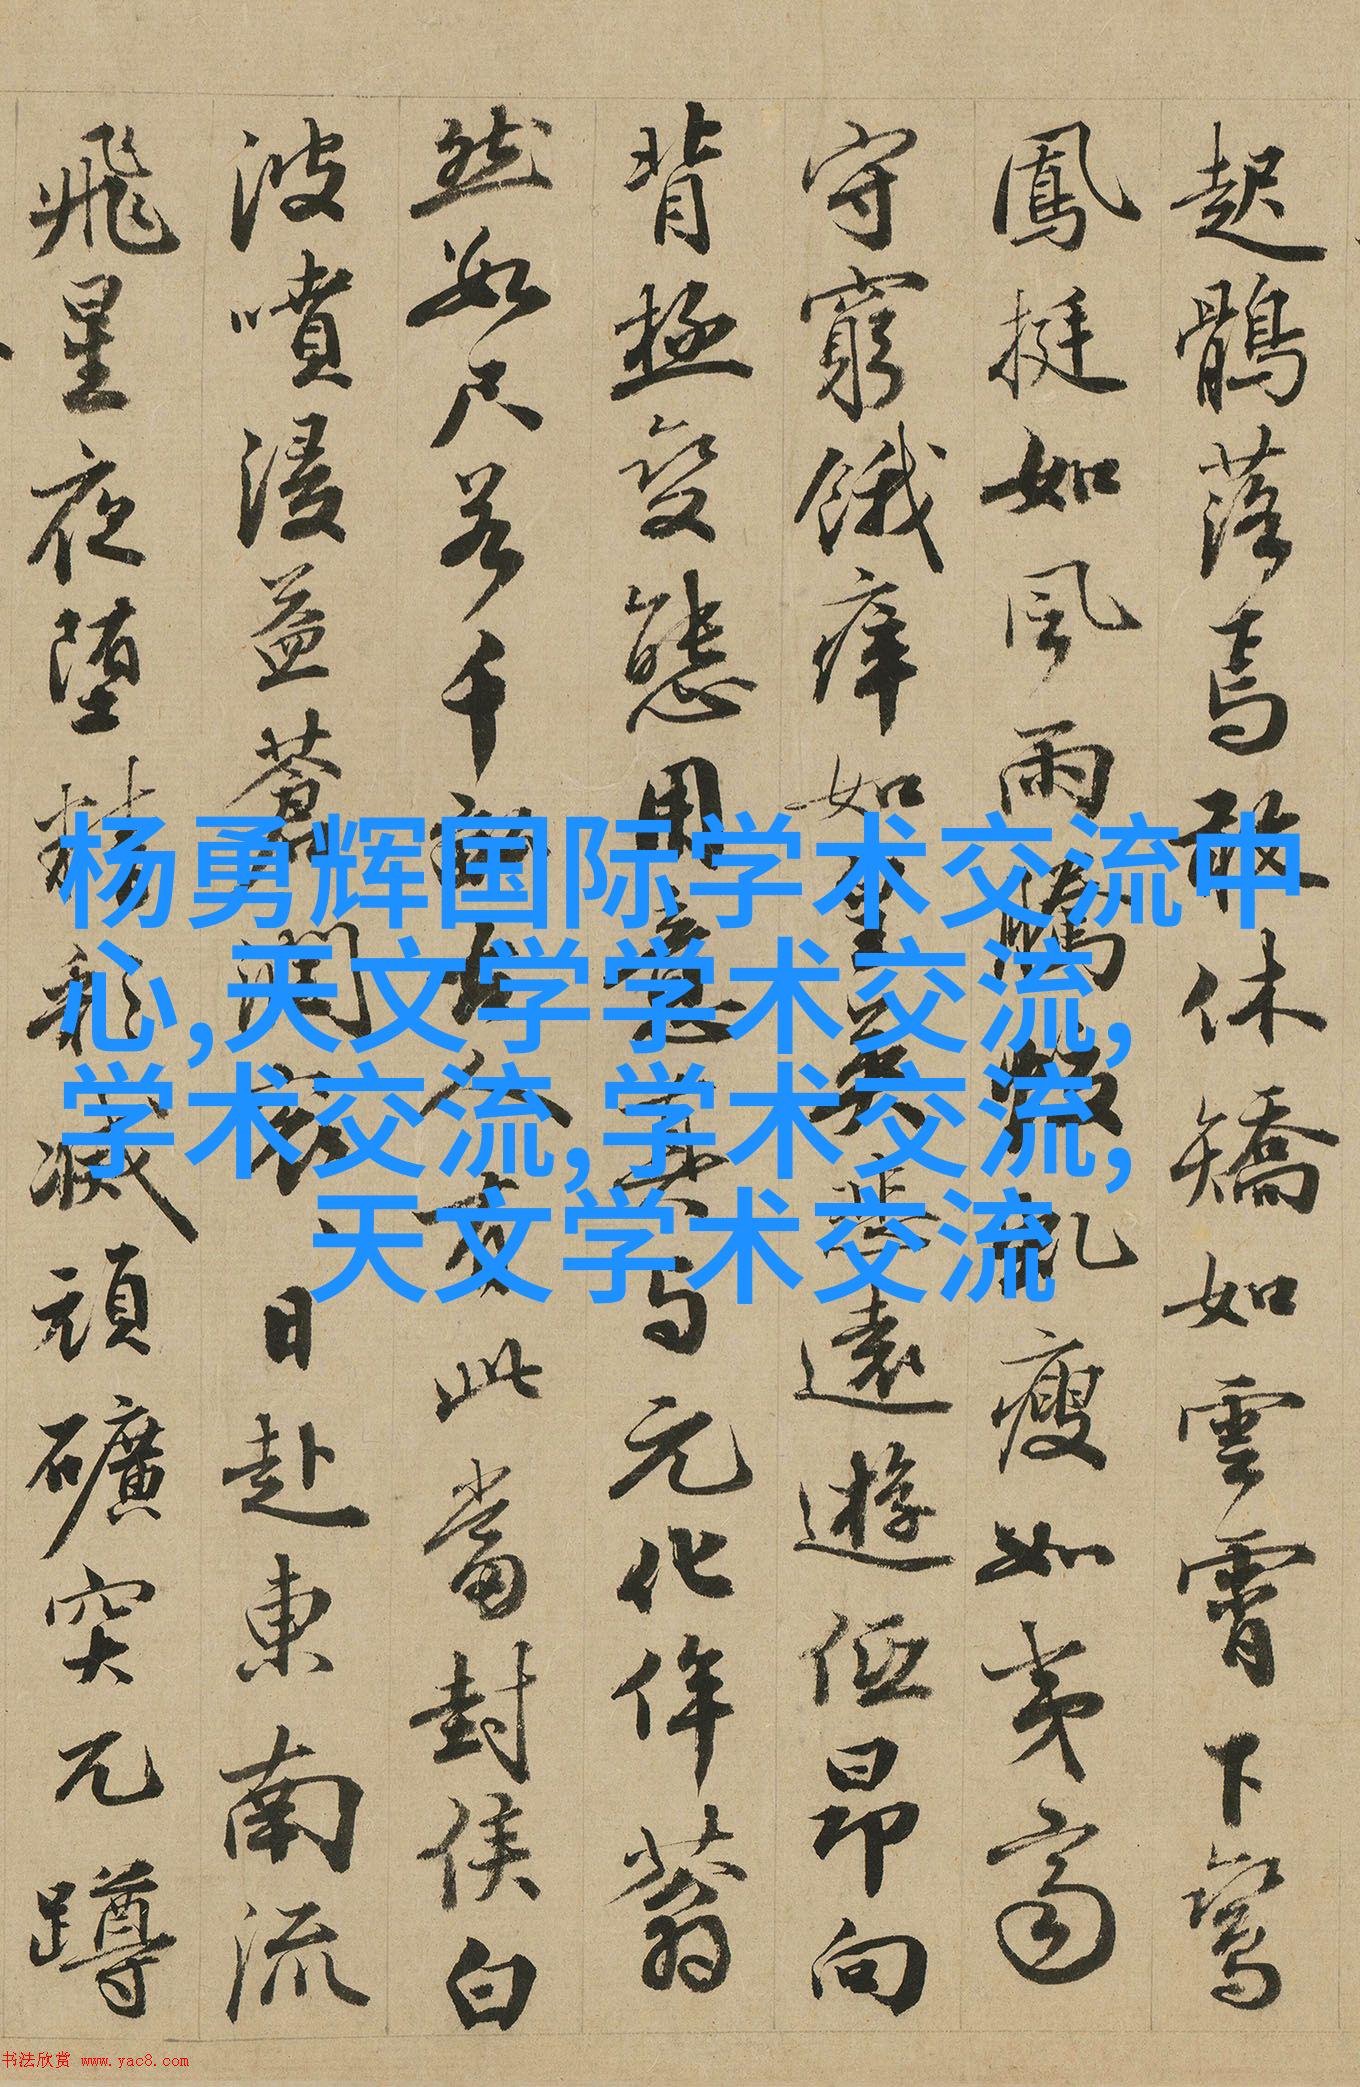 起鶻落焉敢休矯如雲霄下鸞
鳳挺如風雨騰瘦如夷齊
守窮餓瘁如悲遠遊低昂向
背極變態用意與元化侔蓊
然數尺若千古人有此當封侯白
波噴浸益日赴東南流
飛星夜墮精彩滅頑礦突兀蹲
杨勇辉国际学术交流中
心,天文学学术交流,
学术交流,学术交流,
天文学术交流
书法欣赏 www.yac8.com